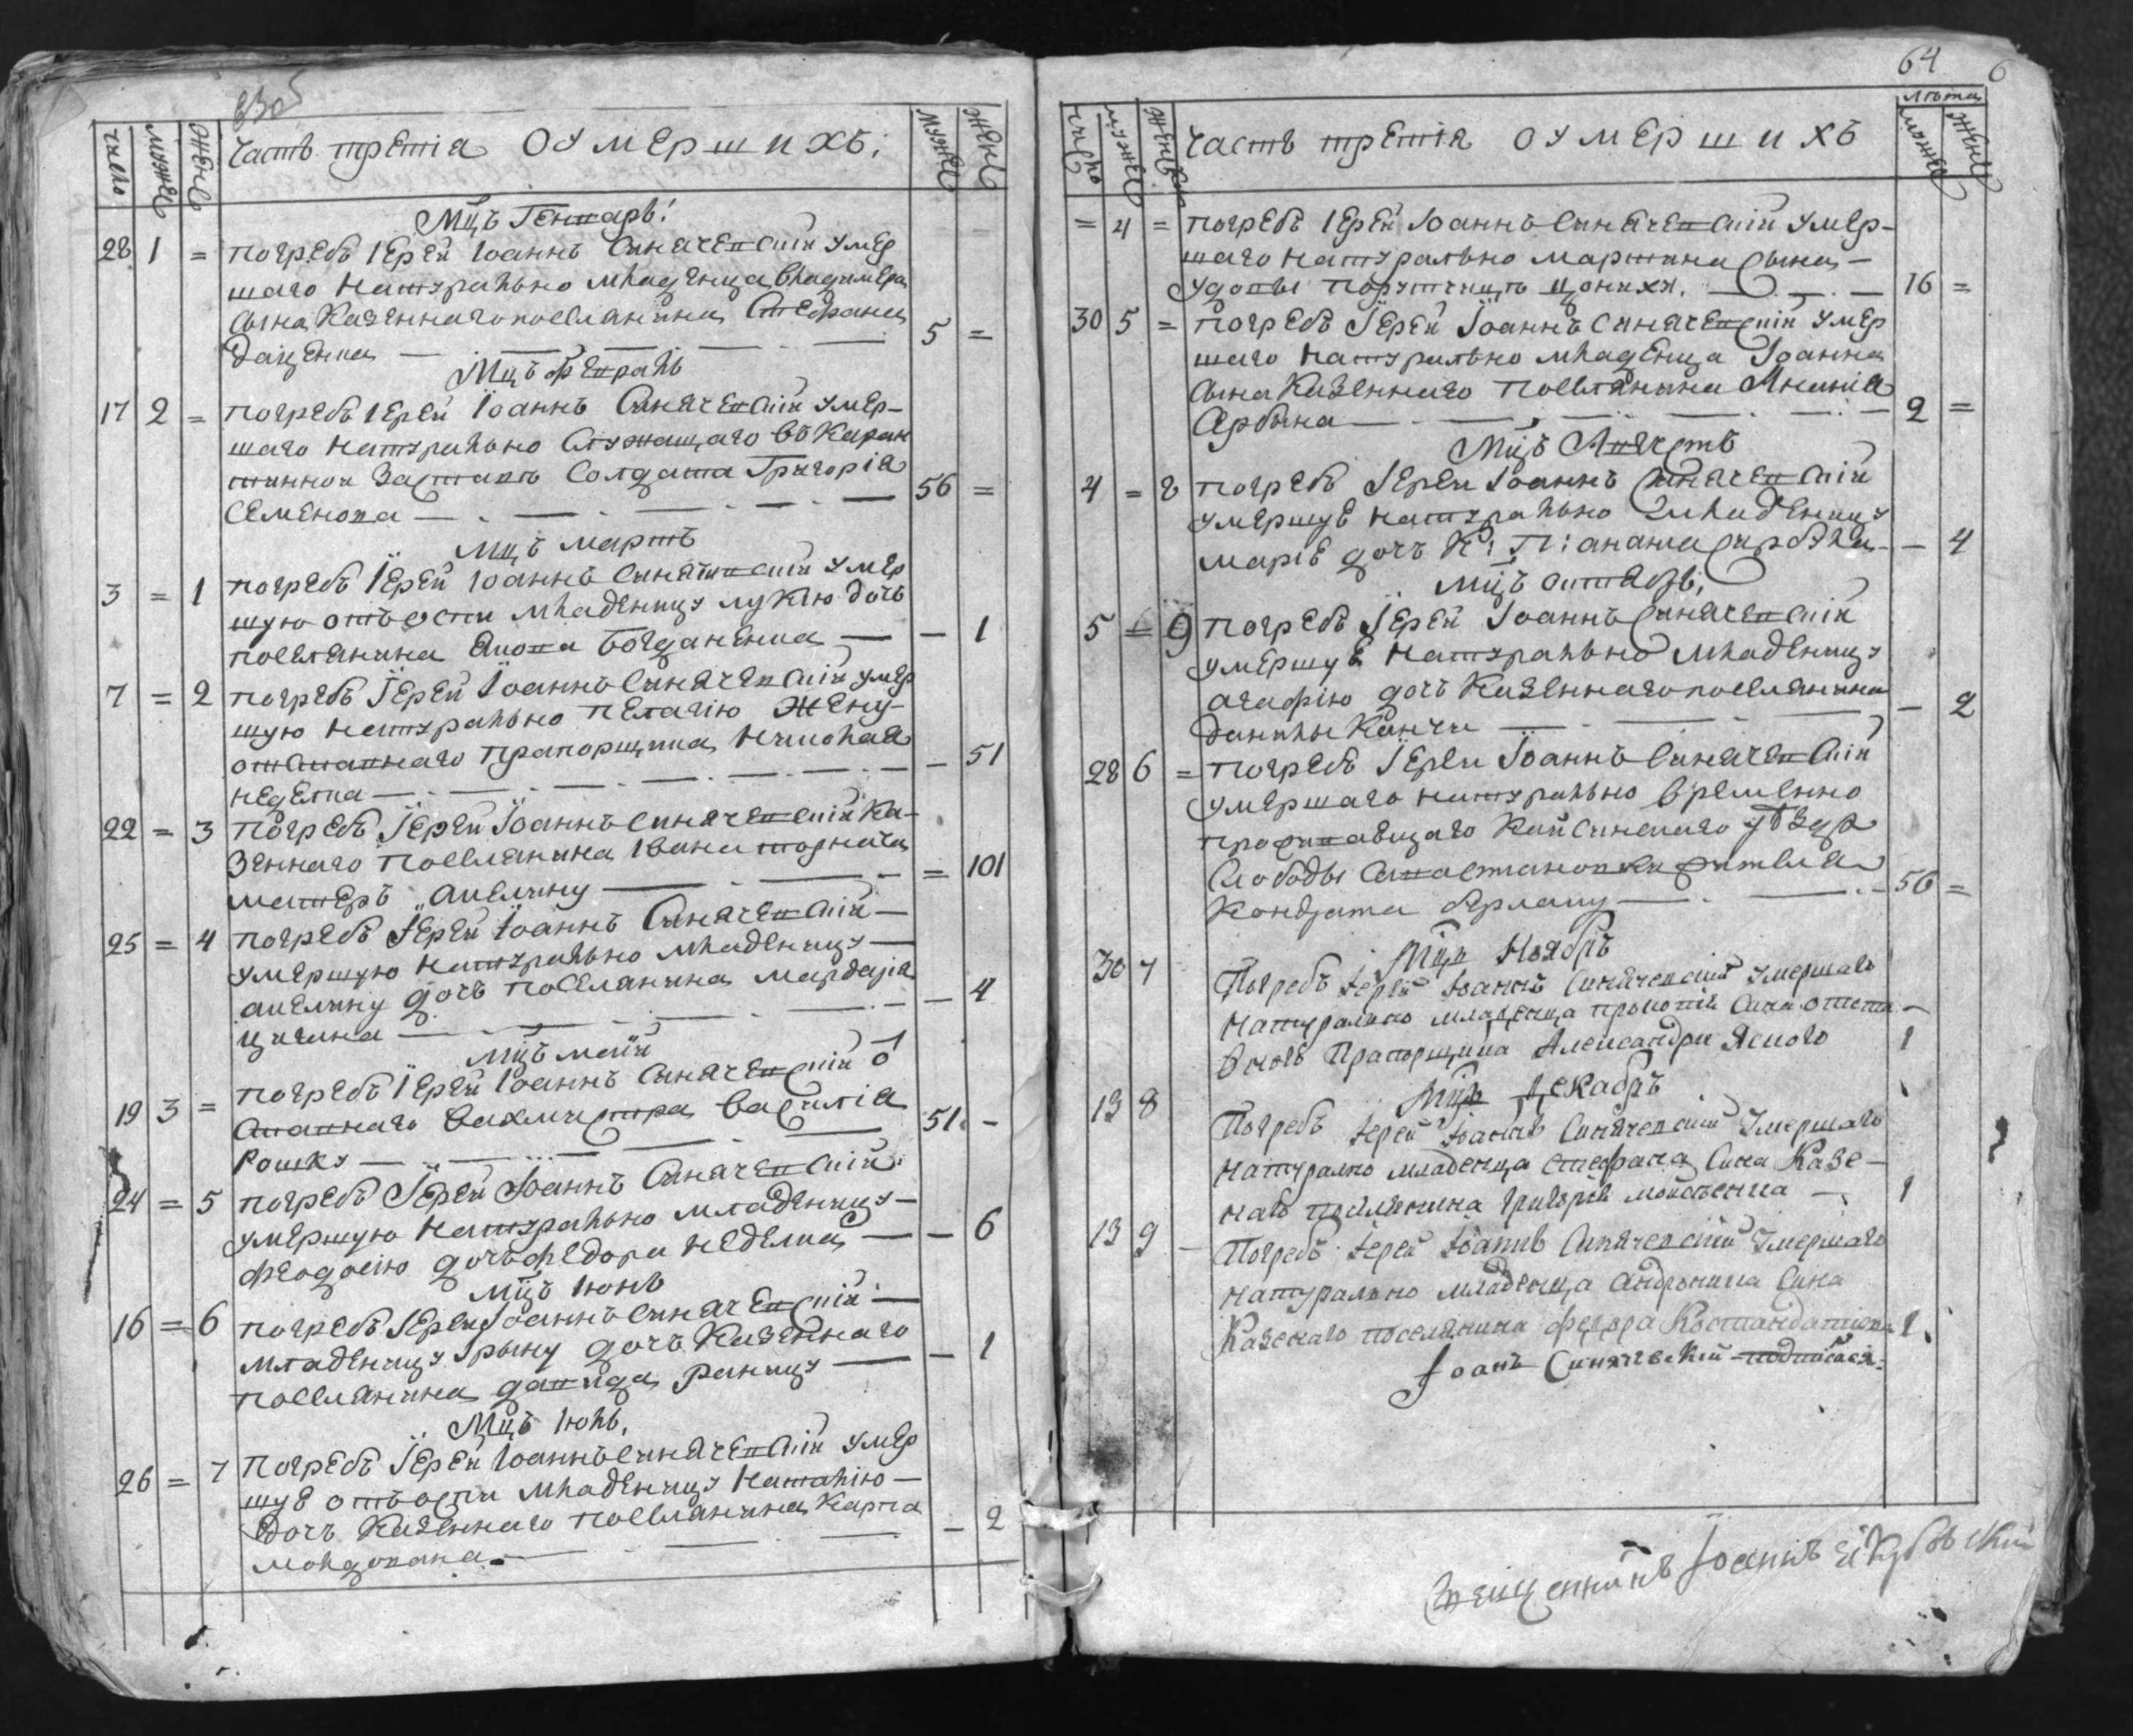 число
мужес
женс
Часть третїа Оумершихъ:
Мужес
Женс
Мцъ Генварь:
28 1 = погребъ Іерей Іоаннъ Синячевскій умер
шаго натурально младенца Владимера
сына Казеннаго поселянина Стефана
Даценка 5 =
Мцъ Февраль
17 2 = погребъ Іерей Іоаннъ Синячевскій умер-
шаго натурально Служащаго въ Каран
тинной заставѣ Солдата Григорія
Семенова 56 =
Мцъ Мартъ
3 = 1 погребъ Іерей Іоаннъ Синячевскій умер
шую отъ оспи младеницу лукію дочь
поселянина Якова Богданенка — 1
7 = 2 погребъ Іерей Іоаннъ Синячевскій умер
шую натурально пелагію жену
отставнаго прапорщика Николая
Неделка — 51
22 = 3 погребъ Іерей Іоаннъ Синячевскій Ка-
зеннаго поселянина Ивана
матерь акелину = 101
25 = 4 погребъ Іерей Іоаннъ Синячевскій —
умершую натурально младеницу —
акелину дочь поселянина Мардарія
Цигана — 4
Мцъ маій
19 3 = погребъ Іерей Іоаннъ Синячевскій о
ставнаго Вахмистра Василія
Рошку 51 -
24 = 5 погребъ Іерей Іоаннъ Синячевскій
умершую натурально младеницу —
феодосію дочь федора Неделка — 6
Мцъ Іюнь
16 = 6 погребъ Іерей Іоаннъ Синячевскій —
младеницу Ірыну дочь Казеннаго
поселянина давида раницу — 1
Мцъ Іюль.
26 = 7 Погребъ Іерей Іоаннъ Синячевскій умер
шуе отъ оспи младеницу Наталію —
Дочь Казеннаго поселянина Карпа
молдована. — 2
64 6
число
мужес
женск
Часть третїя оумершихъ
лѣта
мужес
женс
= 4 = погребъ Іерей Іоаннъ Синячевскій умер-
шаго натурально мартина сына —
удовы 16 =
30 5 = погребъ Іерей Іоаннъ Синячевскій умер
шаго натурально младенца Іоанна
сына Казеннаго поселянина Ананія
Арбына 2 =
Мцъ Августъ
4 = 8 погребъ Іерей Іоаннъ Синячевскій
умершуе натурально младеницу
маріе дочь К: П: — 4
Мцъ октябрь;
5 = 9 погребъ Іерей Іоаннъ Синячевскій
умершуе натурально младеницу
агафію дочь Казеннаго поселянина
данилы Канчи — 2
28 6 = погребъ Іерей Іоаннъ Синячевскій
умершаго натурально временно
уѣзда
Слободы жителя
Кондрата 56 =
Мцъ Ноябръ
30 7 Погребъ Іерей Іоаннъ Синячевский умершаго
натурально младенца прокопія Сина отста —
вного Прапорщика Александри Ясного 1
Мцъ Декабръ
13 8 Погребъ Іерей Іоаннъ Синячевский умершаго
натурално младенца стефана Сина Казе —
наго поселянина Григорія — 1
13 9 — Погребъ Іерей Іоаннъ Синячевский умершаго
натурально младенца андроника Сина
Казенаго поселянина федора 1.
Іоанъ Синячевский подписася:
Священникъ Іоаннъ